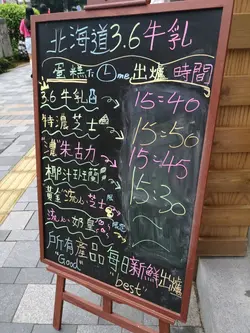 北海道3.6牛乳
蛋糕仔 Lme 出爐 時間
3.6牛乳 15:40
特濃芝士 15:50
"濃"朱古力 15:45
椰汁班蘭 15:30
黃金流心芝士
流心奶皇
所有產品每日新鮮出爐
"Good best"